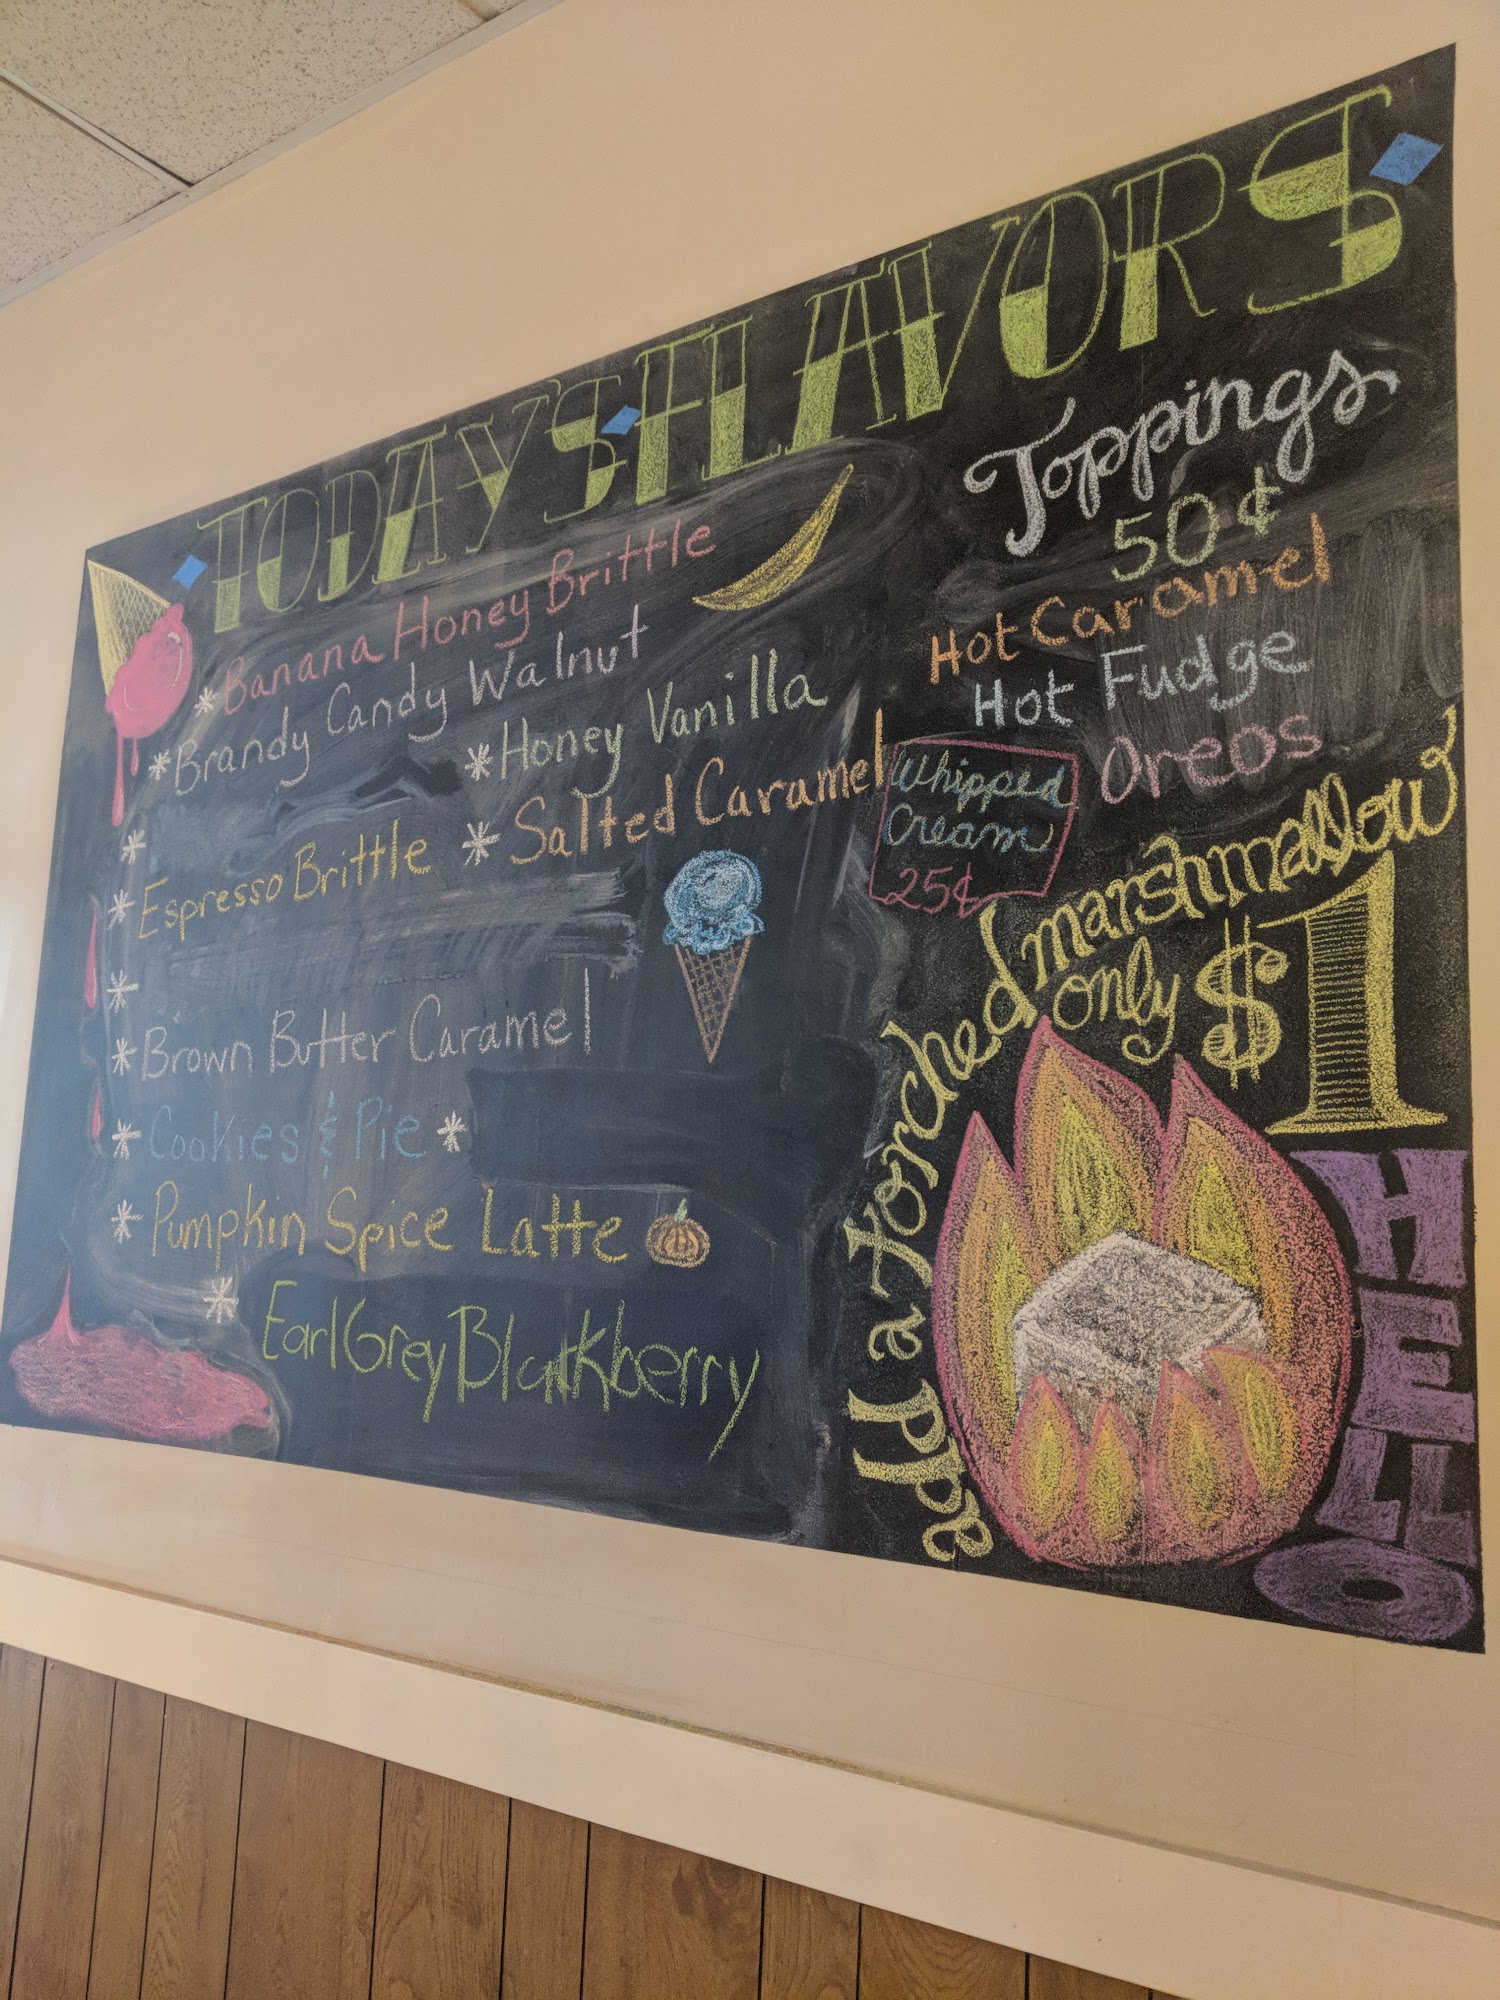 TODAY'S FLAVORS
* Banana Honey Brittle
* Brandy Candy Walnut
* Honey Vanilla
*
* Espresso Brittle
* Salted Caramel
*
* Brown Butter Caramel
* Cookies & Pie *
* Pumpkin Spice Latte
* Earl Grey Blackberry
Toppings
50¢
Hot Caramel
Hot Fudge
Oreos
Whipped
Cream
25¢
add a torched marshmallow
only $1
HELLO